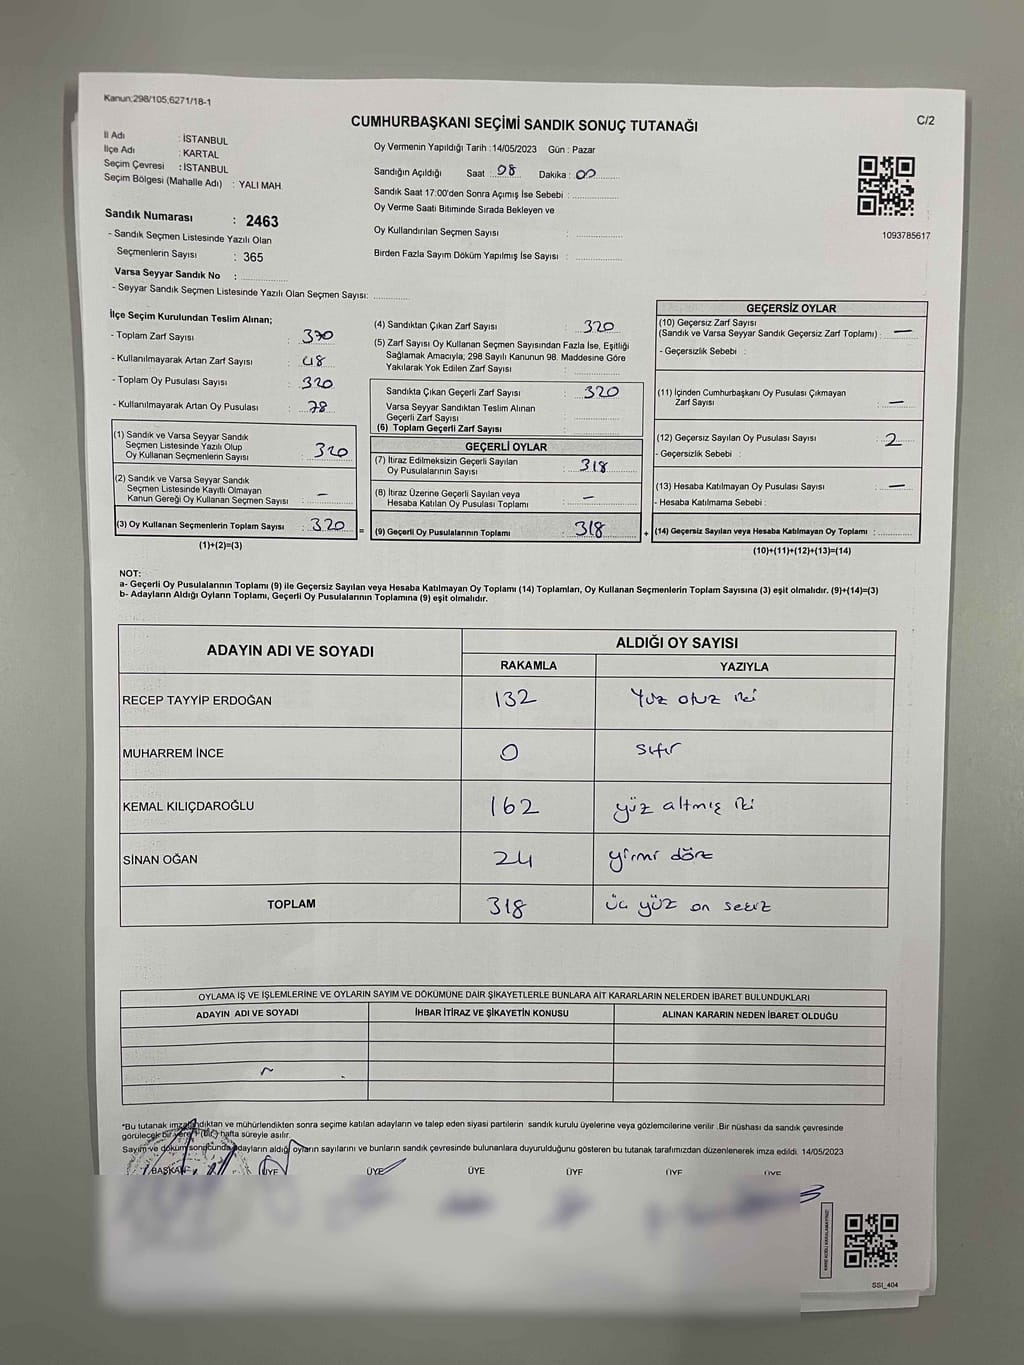 Kanun;298/105;6271/18-1
C/2
CUMHURBAŞKANI SEÇİMİ SANDIK SONUÇ TUTANAĞI
İl Adı : İSTANBUL
İlçe Adı : KARTAL
Seçim Çevresi : İSTANBUL
Seçim Bölgesi (Mahalle Adı) : YALI MAH.
Oy Vermenin Yapıldığı Tarih :14/05/2023 Gün : Pazar
Sandığın Açıldığı Saat : 08 Dakika : 00
Sandık Saat 17:00'den Sonra Açımış İse Sebebi :
Oy Verme Saati Bitiminde Sırada Bekleyen ve
Oy Kullandırılan Seçmen Sayısı :
Birden Fazla Sayım Döküm Yapılmış İse Sayısı :
1093785617
Sandık Numarası : 2463
- Sandık Seçmen Listesinde Yazılı Olan
Seçmenlerin Sayısı : 365
Varsa Seyyar Sandık No :
- Seyyar Sandık Seçmen Listesinde Yazılı Olan Seçmen Sayısı:
İlçe Seçim Kurulundan Teslim Alınan;
- Toplam Zarf Sayısı : 370
- Kullanılmayarak Artan Zarf Sayısı : 48
- Toplam Oy Pusulası Sayısı : 320
- Kullanılmayarak Artan Oy Pusulası : 78
(1) Sandık ve Varsa Seyyar Sandık
Seçmen Listesinde Yazılı Olup
Oy Kullanan Seçmenlerin Sayısı : 320
(2) Sandık ve Varsa Seyyar Sandık
Seçmen Listesinde Kayıtlı Olmayan
Kanun Gereği Oy Kullanan Seçmen Sayısı : –
(3) Oy Kullanan Seçmenlerin Toplam Sayısı : 320 =
(1)+(2)=(3)
(4) Sandıktan Çıkan Zarf Sayısı : 320
(5) Zarf Sayısı Oy Kullanan Seçmen Sayısından Fazla İse, Eşitliği
Sağlamak Amacıyla; 298 Sayılı Kanunun 98. Maddesine Göre
Yakılarak Yok Edilen Zarf Sayısı :
Sandıkta Çıkan Geçerli Zarf Sayısı : 320
Varsa Seyyar Sandıktan Teslim Alınan
Geçerli Zarf Sayısı :
(6) Toplam Geçerli Zarf Sayısı :
GEÇERLİ OYLAR
(7) İtiraz Edilmeksizin Geçerli Sayılan
Oy Pusulalarının Sayısı : 318
(8) İtiraz Üzerine Geçerli Sayılan veya
Hesaba Katılan Oy Pusulası Toplamı : –
(9) Geçerli Oy Pusulalarının Toplamı : 318 +
GEÇERSİZ OYLAR
(10) Geçersiz Zarf Sayısı
(Sandık ve Varsa Seyyar Sandık Geçersiz Zarf Toplamı) : –
- Geçersizlik Sebebi :
(11) İçinden Cumhurbaşkanı Oy Pusulası Çıkmayan
Zarf Sayısı : –
(12) Geçersiz Sayılan Oy Pusulası Sayısı : 2
- Geçersizlik Sebebi :
(13) Hesaba Katılmayan Oy Pusulası Sayısı : –
- Hesaba Katılmama Sebebi :
(14) Geçersiz Sayılan veya Hesaba Katılmayan Oy Toplamı :
(10)+(11)+(12)+(13)=(14)
NOT:
a- Geçerli Oy Pusulalarının Toplamı (9) ile Geçersiz Sayılan veya Hesaba Katılmayan Oy Toplamı (14) Toplamları, Oy Kullanan Seçmenlerin Toplam Sayısına (3) eşit olmalıdır. (9)+(14)=(3)
b- Adayların Aldığı Oyların Toplamı, Geçerli Oy Pusulalarının Toplamına (9) eşit olmalıdır.
ADAYIN ADI VE SOYADI ALDIĞI OY SAYISI
RAKAMLA YAZIYLA
RECEP TAYYİP ERDOĞAN 132 Yüz otuz iki
MUHARREM İNCE 0 sıfır
KEMAL KILIÇDAROĞLU 162 yüz altmış iki
SİNAN OĞAN 24 yirmi dört
TOPLAM 318 üç yüz on sekiz
OYLAMA İŞ VE İŞLEMLERİNE VE OYLARIN SAYIM VE DÖKÜMÜNE DAİR ŞİKAYETLERLE BUNLARA AİT KARARLARIN NELERDEN İBARET BULUNDUKLARI
ADAYIN ADI VE SOYADI İHBAR İTİRAZ VE ŞİKAYETİN KONUSU ALINAN KARARIN NEDEN İBARET OLDUĞU
*Bu tutanak imzalandıktan ve mühürlendikten sonra seçime katılan adayların ve talep eden siyasi partilerin sandık kurulu üyelerine veya gözlemcilerine verilir .Bir nüshası da sandık çevresinde
görülecek bir yere 1 (Bir) hafta süreyle asılır.
Sayım ve döküm sonucunda adayların aldığı oyların sayılarını ve bunların sandık çevresinde bulunanlara duyurulduğunu gösteren bu tutanak tarafımızdan düzenlenerek imza edildi. 14/05/2023
BAŞKAN ÜYE ÜYE ÜYE ÜYE ÜYE ÜYE
SSI_404